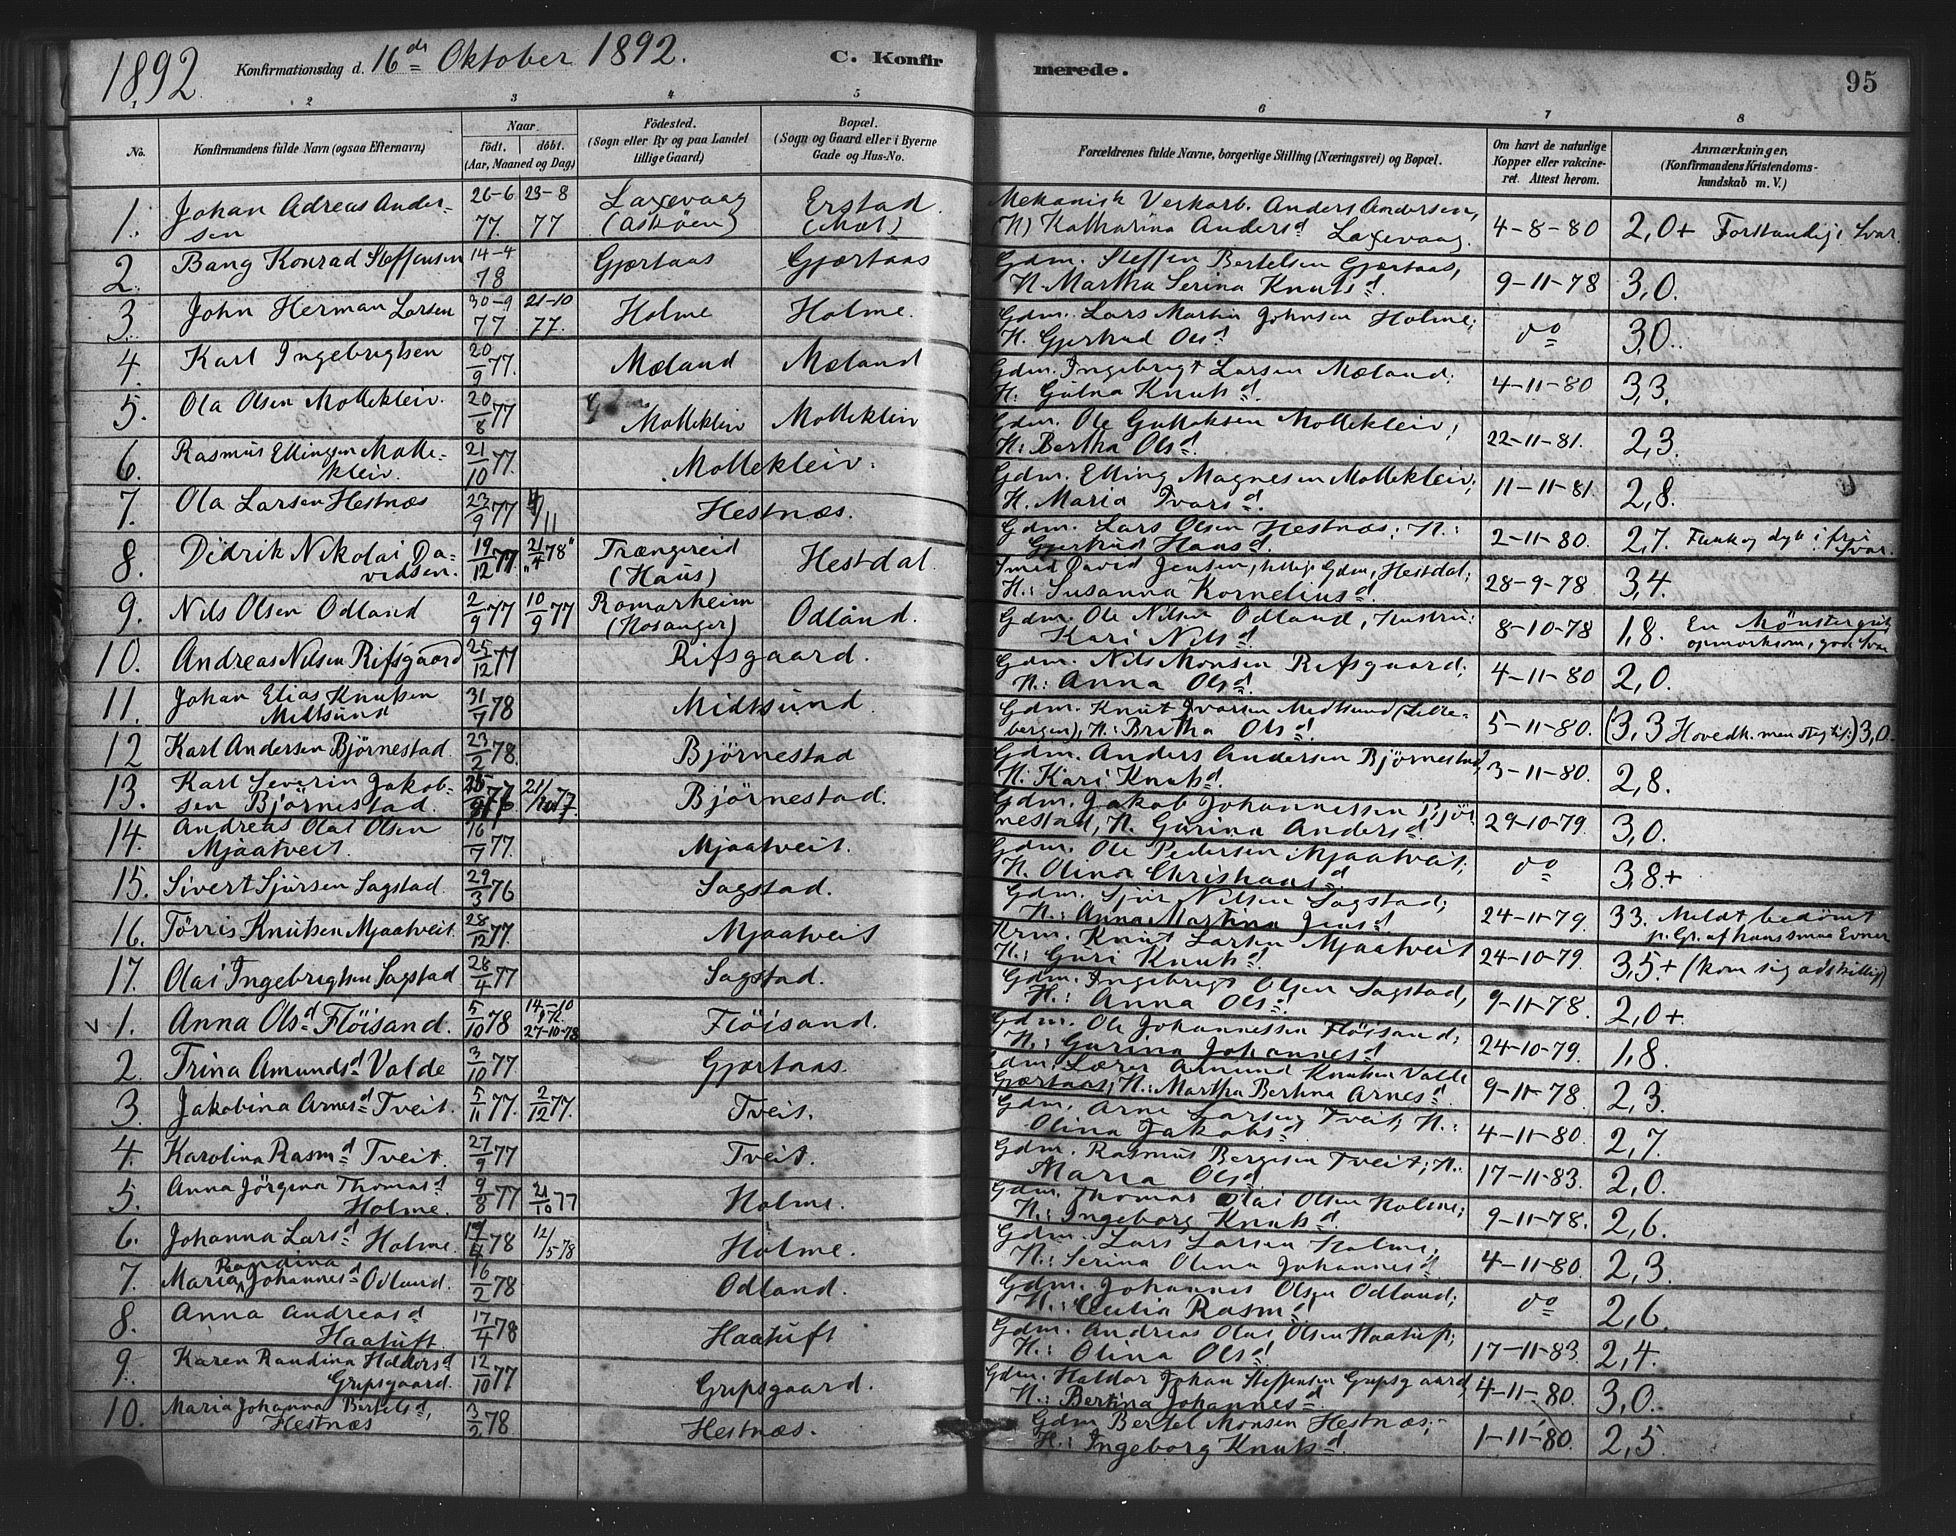 1892 Konfirmationsdag d. 16de Oktober 1892. C. Konfirmerede. 95
1 2 3 4 5 6 7 8
No. Konfirmandens fulde Navn (ogsaa Efternavn) Naar født. døbt. (Aar, Maaned og Dag) Fødested. (Sogn eller By og paa Landet tillige Gaard) Bopæl. (Sogn og Gaard eller i Byerne Gade og Hus-No. Forældrenes fulde Navne, borgerlige Stilling (Næringsvei) og Bopæl. Om havt de naturlige Kopper eller vakcineret. Attest herom. Anmærkninger, (Konfirmandens Kristendomskundskab m. V.)
1. Johan Adreas Andersen 26-6 77. 23-8 77 Laxevaag (Askøen) Erstad (Mæl) Mekanisk Verkarb. Anders Andersen, (H) Katharina Andersd Laxevaag. 4-8-80 2,0+ Forstandige Svar.
2. Bang Konrad Steffensen 14-4 78 Gjærtaas Gjærtaas Gdm. Steffen Bertelsen Gjærtaas, H. Martha Serina Knutsd. 9-11-78 3,0.
3. John Herman Larsen 30-9 77 21-10 77. Holme Holme. Gdm. Lars Martin Johnsen Holme; H. Gjertrud Olsd. do 3,0.
4. Karl Ingebrigtsen 20/9 77. Mæland Mæland Gdm. Ingebrigt Larsen Mæland. H: Gutna Knutsd. 4-11-80 3,3.
5. Ola Olsen Molleklein. 20/8 77 Molleklein Molleklein Gdm. Ole Guttaksen Mollekleiv; H: Bertha Olsd. 22-11-81. 2,3.
6. Rasmus Ellingsen Mollekleiv. 21/10 77. Mollekleiv. Gdm. Elling Magnesen Mollekleiv; H. Maria Ivarsd. 11-11-81. 2,8.
7. Ola Larsen Hestnæs 23/9 77 4/11 Hestnæs. Gdm. Lars Olsen Hestnæs; H: Gjertrud Hansd. 2-11-80. 2,7. i fri Svar.
8. Didrik Nikolai Davidsen. 19/12 77 21/4 78 Trængereid (Haus) Hestdal Smed David Jensen, tillige Gdm, Hestdal; H: Susanna Korneliusd. 28-9-78 3,4.
9. Nils Olsen Odland 2/9 77 10/9 77 Romarheim (Hosanger) Odland. Gdm. Ole Nilsen Odland, Hustru: Kari Nilsd. 8-10-78 1,8. En Mønstergut opmærksom, gode Svar
10. Andreas Nilsen Rifsgaard 25/12 77 Rifsgaard. Gdm. Nils Monsen Rifsgaard; H: Anna Olsd. 4-11-80 2,0.
11. Johan Elias Knutsen Midtsund 31/7 78 Midtsund. Gdm. Knut Ivarsen Midtsund (Lillebergen), H: Britha Olsd. 5-11-80. (3,3 Hovedk. men steg til:) 3,0.
12 Karl Andersen Bjørnestad. 23/2 78. Bjørnestad Gdm. Anders Andersen Bjørnestad, H: Kari Knutsd. 3-11-80. 2,8.
13. Karl Severin Jakobsen Bjørnestad. 21/10 77. Bjørnestad. Gdm. Jakob Johannessen Bjørnestad, H. Gurina Andersd. 29-10-79. 3,0.
14. Andreas Olai Olsen Mjaatveit. 16/7 77. Mjaatveit. Gdm. Ole Pedersen Mjaatveit; H. Olina Christiansd. do 3,8+
15. Sivert Sjursen Sagstad 29/3 76 Sagstad. Gdm. Sjur Nilsen Sagstad; H: Anna Martina Jensd. 24-11-79. 3,3. Meldt bedømt p. Gr. af hans smaa Evner
16. Tørris Knutsen Mjaatveit. 28/12 77. Mjaatveit Krm. Knut Larsen Mjaatveit H: Guri Knutsd. 24-10-79. 3,5+ (kom sig adskilligt)
17. Olai Ingebrigtsen Sagstad 28/4 77 Sagstad. Gdm. Ingebrigt Olsen Sagstad, H: Anna Olsd. 9-11-78. 2,0+.
1. Anna Olsd Fløisand. 5/10 78 14-10 27-10-78 Fløisand. Gdm. Ole Johannessen Fløisand; H: Gurina Johannesd. 24-10-79. 1,8
2. Trina Amundsd Valde 3/10 77 Gjærtaas. Gdm. Lærer Amund Knutsen Valde Gjærtaas; H: Martha Bertina Arnesd. 9-11-78. 2,3.
3. Jakobina Arnesd Tveit. 5/11 77. 2/12 77. Tveit. Gdm. Arne Larsen Tveit, H: Olina Jakobsd. 4-11-80. 2,7.
4. Karolina Rasmd Tveit. 27/9 77 Tveit. Gdm. Rasmus Bergesen Tveit; H: Maria Olsd. 17-11-83. 2,0.
5. Anna Jørgina Thomasd Holme. 9/8 77 21/10 77 Holme. Gdm. Thomas Olai Olsen Holme; H: Ingeborg Knutsd. 9-11-78. 2,6.
6. Johanna Larsd Holme. 78 12/5 78 Holme. Gdm. Lars Larsen Holme; H: Serina Olina Johannesd. 4-11-80. 2,3.
7. Maria Randina Johannesd Odland. 16/2 78 Odland. Gdm. Johannes Olsen Odland; H: Cecilia Rasmd. do 2,6.
8. Anna Andreasd Haatuft. 17/4 78 Haatuft Gdm. Andreas Olai Olsen Haatuft; H: Olina Olsd. 17-11-83. 2,4.
9. Karen Randina Haldorsd Gripsgaard. 12/10 77 Gripsgaard. Gdm. Haldor Johan Steffensen Gripsgaard, H: Bertina Johannesd. 4-11-80. 3,0.
10. Maria Johanna Bertelsd, Hestnæs 3/2 78 Hestnæs. Gdm Bertel Monsen Hestnæs; H: Ingeborg Knutsd. 1-11-80. 2,5